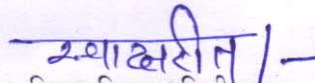 स्थाक्षरीत/-